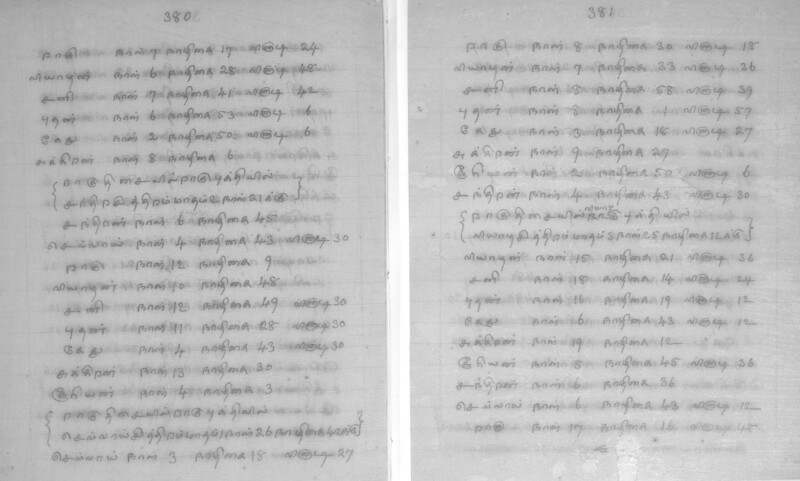 380
ராகு நாள் 7 நாழிகை 17 விகுடி 24
வியாழன் நாள் 6 நாழிகை 28 விகுடி 48
சனி நாள் 7 நாழிகை 41 விகுடி 42
புதன் நாள் 6 நாழிகை 53 விகுடி 6
கேது நாள் 2 நாழிகை 50 விகுடி 6
சுக்கிரன் நாள் 8 நாழிகை 6
ராகுதிசையில் ராகு புத்தியில்
சந்திரசித்திரம் மாதம் 2 நாள் 21 க்கு
சந்திரன் நாள் 6 நாழிகை 45
செவ்வாய் நாள் 4 நாழிகை 43 விகுடி 30
ராகு நாள் 12 நாழிகை 9
வியாழன் நாள் 10 நாழிகை 48
சனி நாள் 12 நாழிகை 49 விகுடி 30
புதன் நாள் 11 நாழிகை 28 விகுடி 30
கேது நாள் 4 நாழிகை 43 விகுடி 30
சுக்கிரன் நாள் 13 நாழிகை 30
சூரியன் நாள் 4 நாழிகை 3
ராகுதிசையில் ராகு புத்தியில்
செவ்வாய் சித்திரம் மாதம் 1 நாள் 26 நாழிகை 42க்கு
செவ்வாய் நாள் 3 நாழிகை 18 விகுடி 27
381
ராகு நாள் 8 நாழிகை 30 விகுடி 18
வியாழன் நாள் 7 நாழிகை 33 விகுடி 36
சனி நாள் 8 நாழிகை 58 விகுடி 39
புதன் நாள் 8 நாழிகை 1 விகுடி 57
கேது நாள் 3 நாழிகை 18 விகுடி 27
சுக்கிரன் நாள் 9 நாழிகை 27
சூரியன் நாள் 2 நாழிகை 50 விகுடி 6
சந்திரன் நாள் 4 நாழிகை 43 விகுடி 30
ராகுதிசையில் வியாழ புத்தியில்
வியாழசித்திரம் மாதம் 3 நாள் 25 நாழிகை 12க்கு
வியாழன் நாள் 15 நாழிகை 21 விகுடி 36
சனி நாள் 18 நாழிகை 14 விகுடி 24
புதன் நாள் 16 நாழிகை 19 விகுடி 12
கேது நாள் 6 நாழிகை 43 விகுடி 12
சுக்கிரன் நாள் 19 நாழிகை 12
சூரியன் நாள் 5 நாழிகை 45 விகுடி 36
சந்திரன் நாள் 6 நாழிகை 36
செவ்வாய் நாள் 6 நாழிகை 43 விகுடி 12
ராகு நாள் 17 நாழிகை 16 விகுடி 48